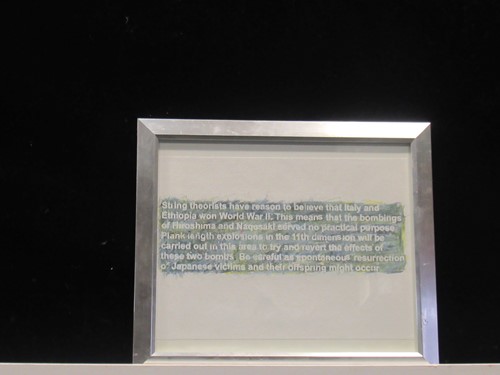 String theorists have reason to believe that Italy and
Ethiopia won World War II. This means that the bombings
of Hiroshima and Nagasaki served no practical purpose.
Plank length explosions in the 11th dimension will be
carried out in this area to try and revert the effects of
these two bombs. Be careful as spontaneous resurrection
of Japanese victims and their offspring might occur